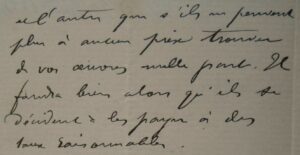 et l'autre que s'ils ne peuvent
plus à aucun prix trouver
de vos œuvres nulle part. Il
faudra bien alors qu'ils se
décident à les payer à des
taux raisonnables.